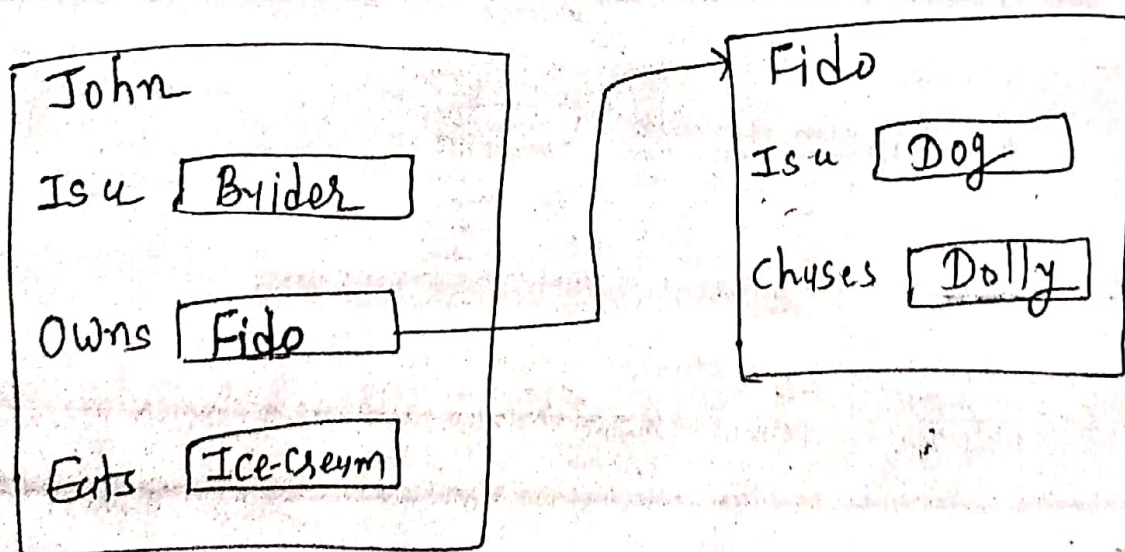 John
Is a Builder
Owns Fido
Eats Ice-Cream
Fido
Is a Dog
Chases Dolly